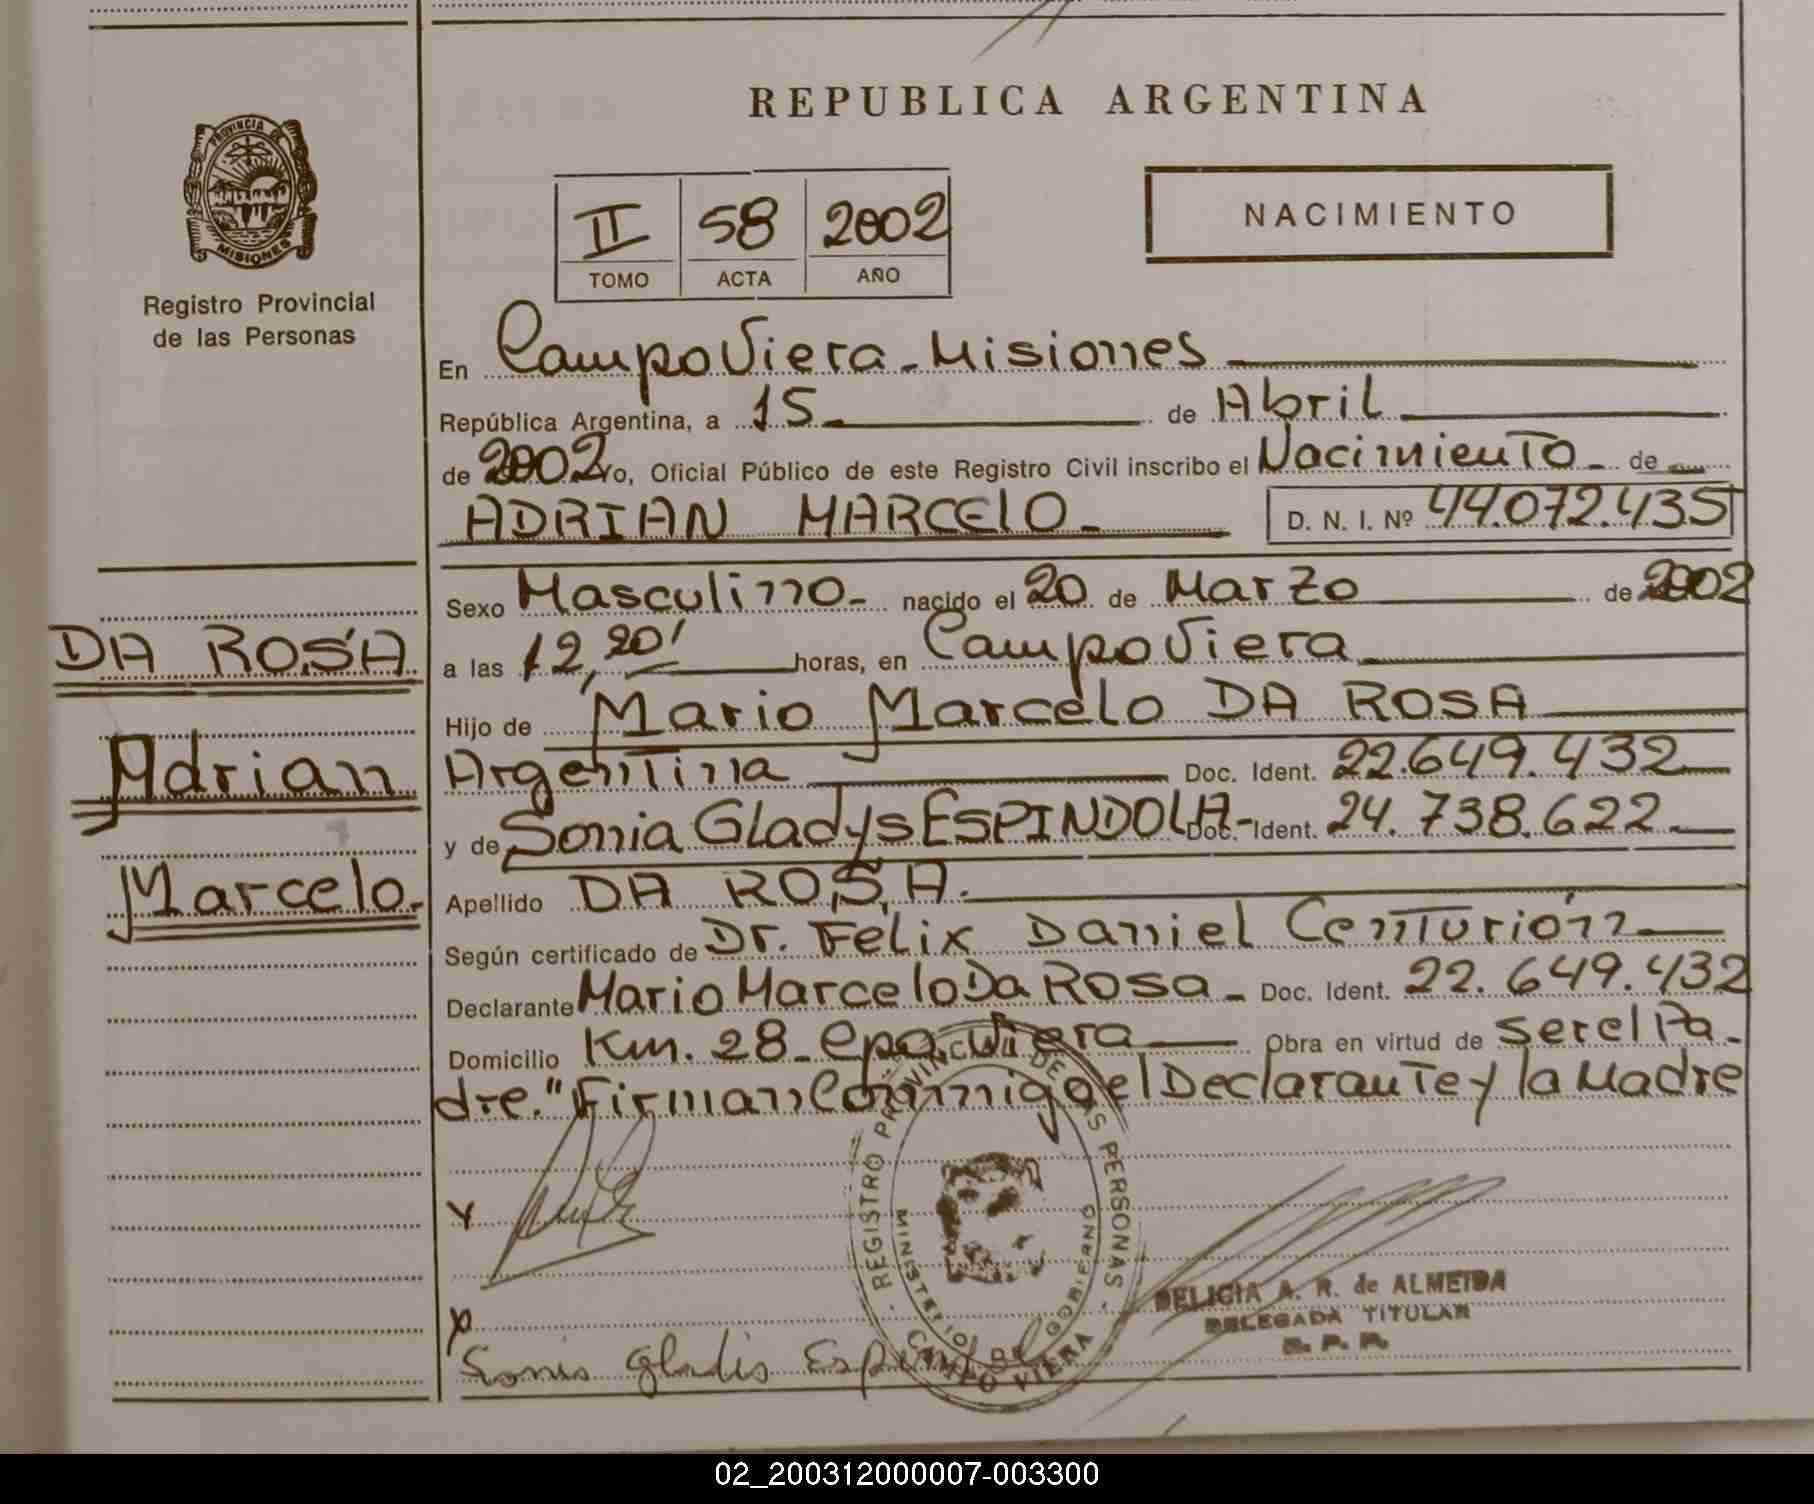 REPUBLICA ARGENTINA
PROVINCIA DE
MISIONES
Registro Provincial
de las Personas
II 58 2002
TOMO ACTA AÑO
NACIMIENTO
En Campo Viera - Misiones
República Argentina, a 15 de Abril
de 2002 Yo, Oficial Público de este Registro Civil inscribo el Nacimiento de
ADRIAN MARCELO - D. N. I. Nº 44.072.435
Sexo Masculino - nacido el 20 de Marzo de 2002
DA ROSA
a las 12,20' horas, en Campo Viera
Hijo de Mario Marcelo DA ROSA
Adrian
Argentina Doc. Ident. 22.649.432
y de Sonia GLadys ESPINDOLA - Doc. Ident. 24.738.622
Marcelo.
Apellido DA ROSA.
Según certificado de Dr. Felix Daniel Centurión
Declarante Mario Marcelo Da Rosa - Doc. Ident. 22.649.432
Domicilio Km. 28 - Cpo. Viera Obra en virtud de ser el Pa-
dre." Firman Conmigo el Declarante y la Madre
REGISTRO PROVINCIAL DE LAS PERSONAS
MINISTERIO DE GOBIERNO
CAMPO VIERA
DELICIA A. R. de ALMEIDA
DELEGADA TITULAR
R. P. P.
Sonia Gladis Espindola
02_200312000007-003300